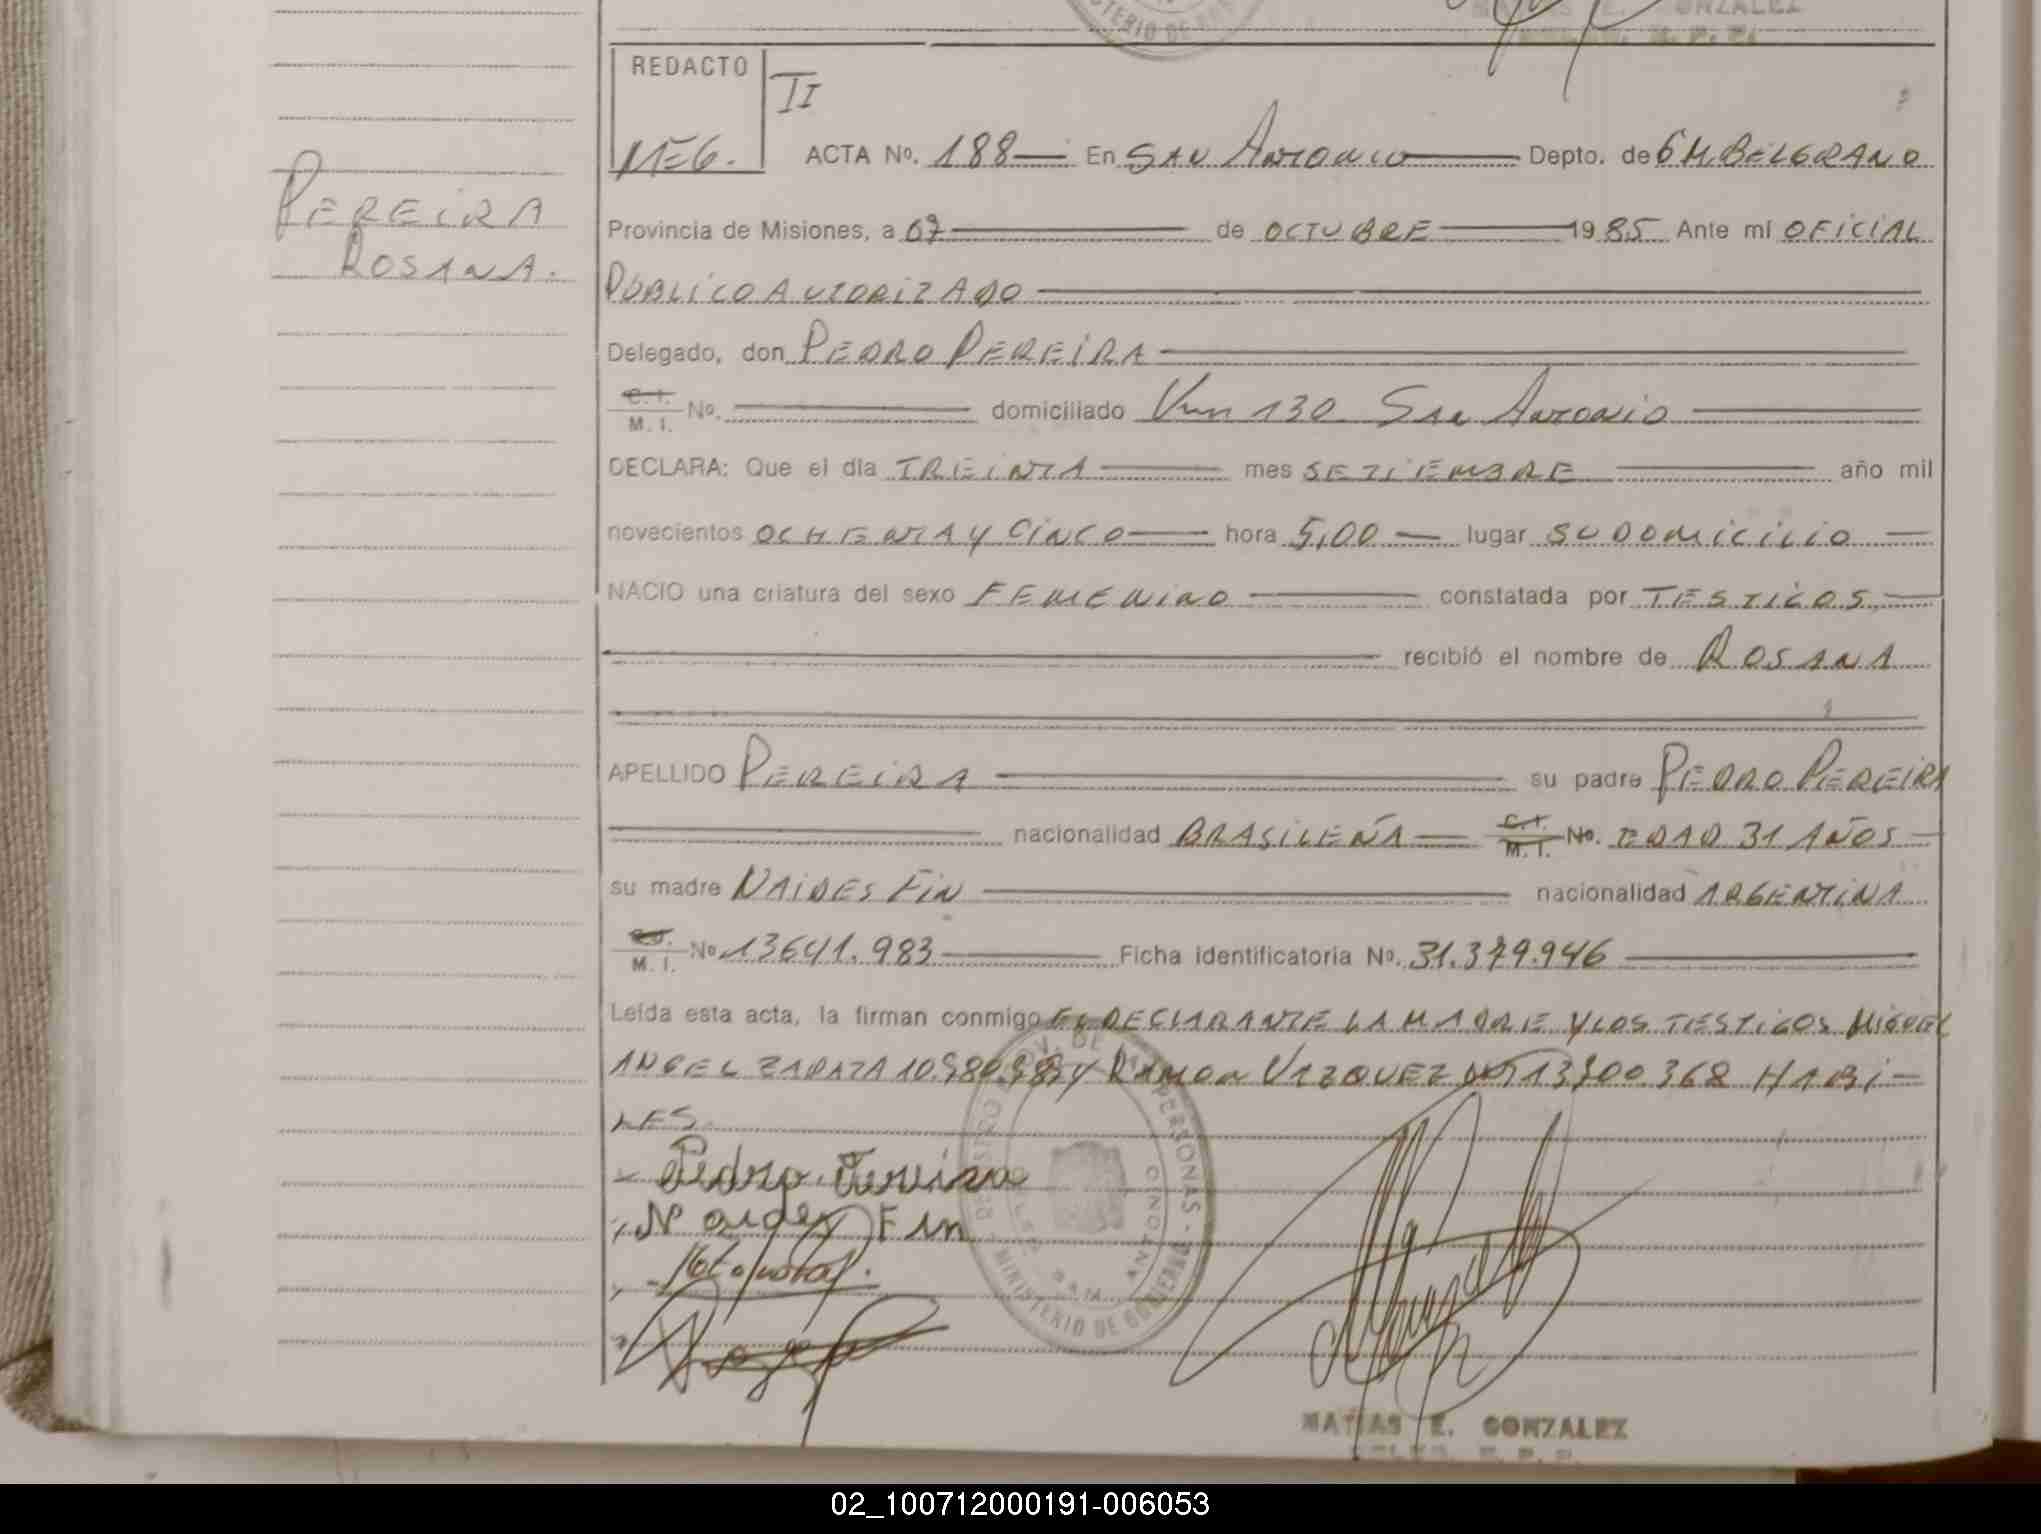 REDACTO
II
M.E.G. ACTA No. 188 En SAN ANTONIO Depto. de G M. BELGRANO
PEREIRA
ROSANA.
Provincia de Misiones, a 07 de OCTUBRE 1985 Ante mi OFICIAL
PUBLICO AUTORIZADO
Delegado, don PEDRO PEREIRA
C. I. M. I. No. domiciliado Km 130 SAN ANTONIO
DECLARA: Que el día TREINTA mes SETIEMBRE año mil
novecientos OCHENTA Y CINCO hora 5,00 lugar SU DOMICILIO
NACIO una criatura del sexo FEMENINO constatada por TESTIGOS
recibió el nombre de ROSANA
APELLIDO PEREIRA su padre PEDRO PEREIRA
nacionalidad BRASILEÑA C.I. M. I. No. EDAD 31 AÑOS
su madre NAIDES FIN nacionalidad ARGENTINA
M. I. No 13641.983 Ficha identificatoria No. 31.379.946
Leída esta acta, la firman conmigo EL DECLARANTE LA MADRE Y LOS TESTIGOS MIGUEL
ANGEL ZARATA Y RAMON VAZQUEZ HABI-
LES.
Pedro Pereira
Naides Fin
MINISTERIO DE GOBIERNO
SAN ANTONIO
MATIAS E. GONZALEZ
02_100712000191-006053